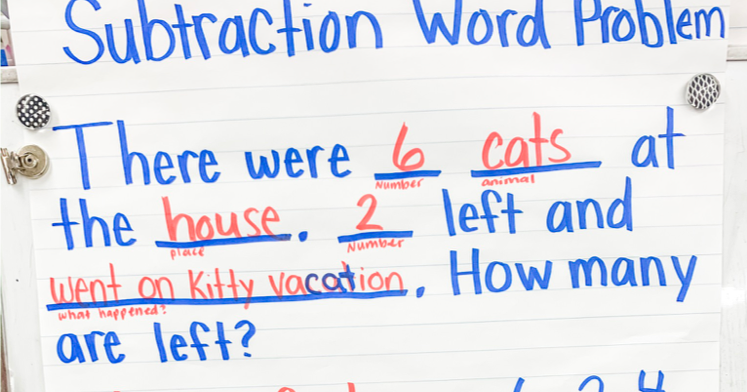 Subtraction Word Problem
There were 6 cats at
Number animal
the house. 2 left and
place Number
went on Kitty vacation. How many
what happened?
are left?